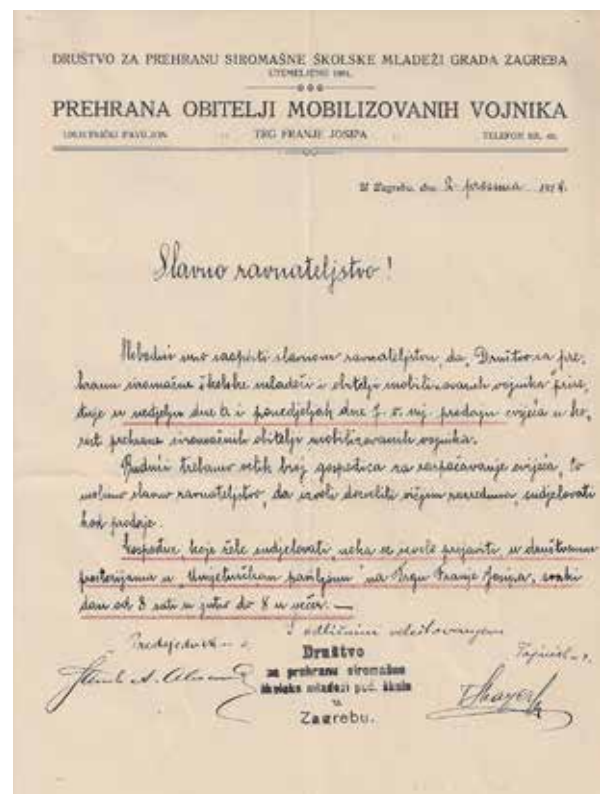 DRUŠTVO ZA PREHRANU SIROMAŠNE ŠKOLSKE MLADEŽI GRADA ZAGREBA
UTEMELJENO
PREHRANA OBITELJI MOBILIZOVANIH VOJNIKA
UMJETNIČKI PAVILJON TRG FRANJE JOSIPA TELEFON BR.
U Zagrebu, dne 2. prosinca 1914.
Slavno ravnateljstvo!
slavnom ravnateljstvu, da "Društvo za pre-
hranu siromašne školske mladeži i obitelji mobilizovanih vojnika" prire-
đuje u nedjelju dne 6. i ponedjeljak dne 7. o. mj. prodaju cvijeća u ko-
rist prehrane siromašnih obitelji mobilizovanih vojnika.
Budući trebamo velik broj gospođica za raspačavanje cvijeća, to
molimo slavno ravnateljstvo, da izvoli dozvoliti višjim razredima, sudjelovati
kod prodaje.
Gospođice, koje žele sudjelovati, neka se izvole prijaviti u društvenim
prostorijama u "Umjetničkom paviljonu" na Trgu Franje Josipa, svaki
dan od 8 sati u jutro do 8 u večer. —
S odličnim veleštovanjem
Društvo
za prehranu siromašne
školske mladeži puč. škola
u
Zagrebu.